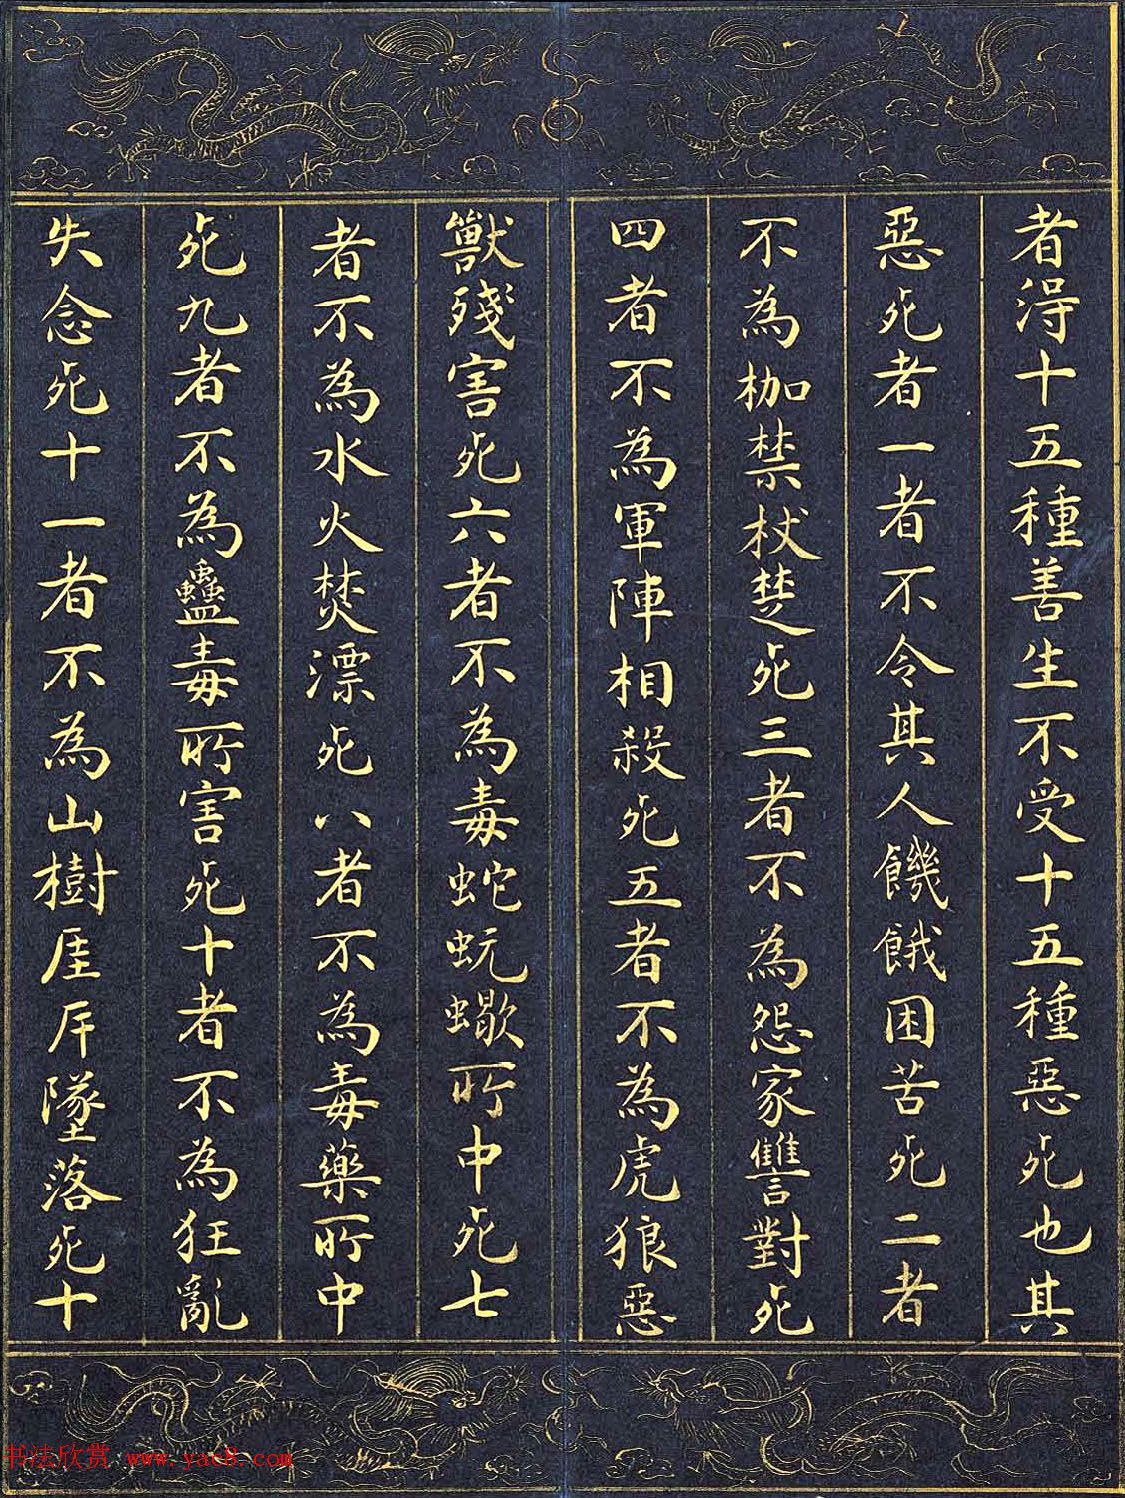 者得十五種善生不受十五種惡死也其
惡死者一者不令其人饑餓困苦死二者
不為枷禁杖楚死三者不為怨家讐對死
四者不為軍陣相殺死五者不為虎狼惡
獸殘害死六者不為毒蛇蚖蠍所中死七
者不為水火焚漂死八者不為毒藥所中
死九者不為蠱毒所害死十者不為狂亂
失念死十一者不為山樹厓岸墜落死十
书法欣赏 www.yac8.com